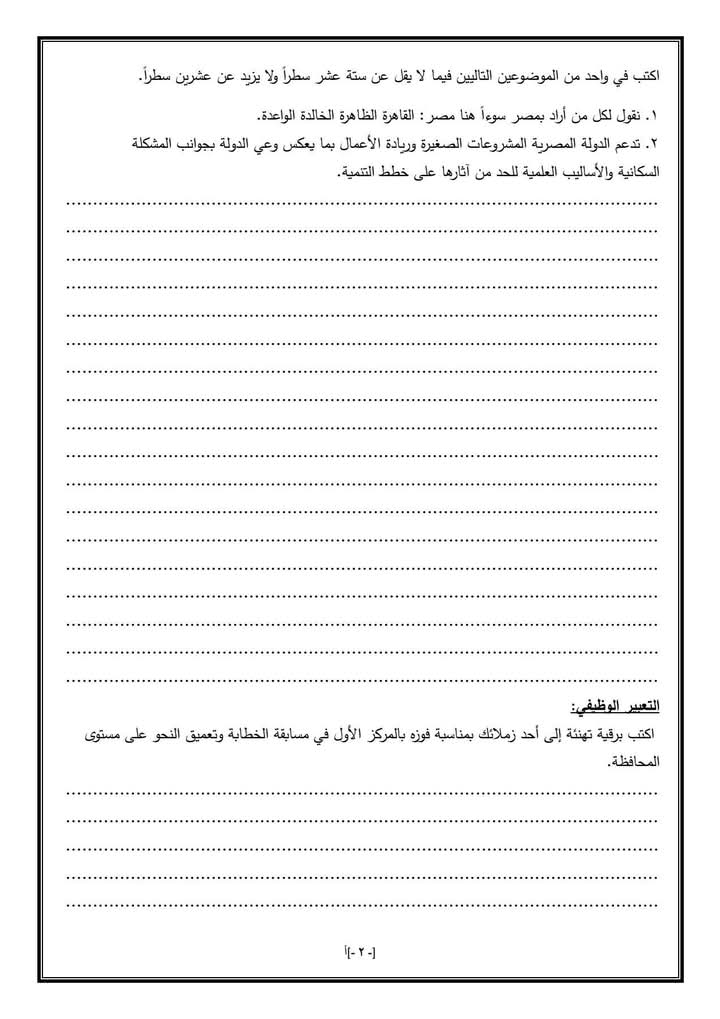 اكتب في واحد من الموضوعين التاليين فيما لا يقل عن ستة عشر سطراً ولا يزيد عن عشرين سطراً.
١. نقول لكل من أراد بمصر سوءاً هنا مصر: القاهرة الظاهرة الخالدة الواعدة.
٢. تدعم الدولة المصرية المشروعات الصغيرة وريادة الأعمال بما يعكس وعي الدولة بجوانب المشكلة
السكانية والأساليب العلمية للحد من آثارها على خطط التنمية.
التعبير الوظيفي:
اكتب برقية تهنئة إلى أحد زملائك بمناسبة فوزه بالمركز الأول في مسابقة الخطابة وتعميق النحو على مستوى
المحافظة.
[- ٢ -]أ